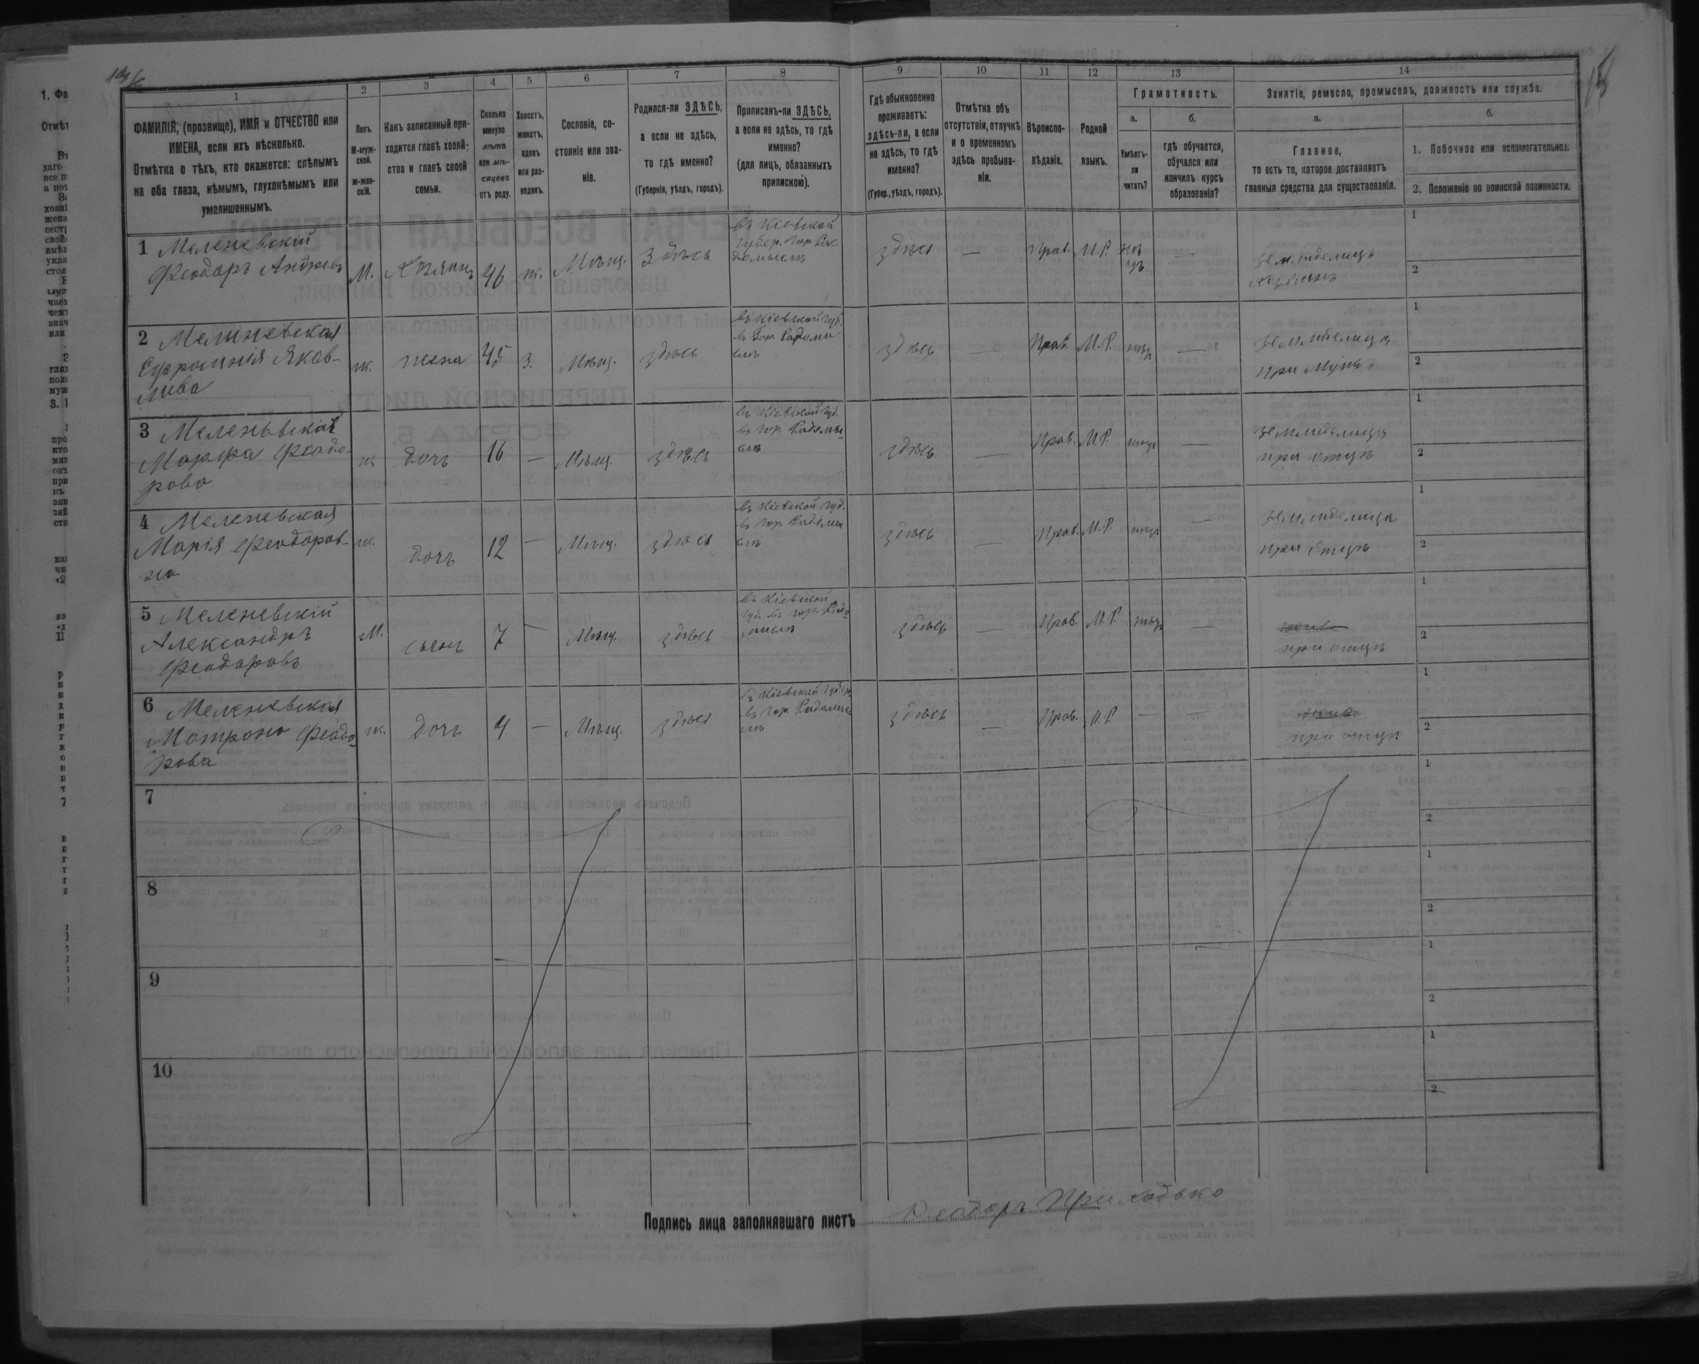 1
2
3
4
5
6
7
8
9
10
11
12
13
14
ФАМИЛІЯ, (прозвище), ИМЯ и ОТЧЕСТВО или
ИМЕНА, если ихъ нѣсколько.
Отмѣтка о тѣхъ, кто окажется: слѣпымъ
на оба глаза, нѣмымъ, глухонѣмымъ или
умалишеннымъ.
Полъ.
М-муж-
ской.
Ж-жен-
скій.
Какъ записанный при-
ходится главѣ хозяй-
ства и главѣ своей
семьи.
Сколько
минуло
лѣтъ
или мѣ-
сяцевъ
отъ роду.
Холостъ,
женатъ,
вдовъ
или раз-
веденъ.
Сословіе, со-
стояніе или зва-
ніе.
Родился-ли ЗДѢСЬ,
а если не здѣсь,
то гдѣ именно?
(Губернія, уѣздъ, городъ).
Приписанъ-ли ЗДѢСЬ,
а если не здѣсь, то гдѣ
именно?
(для лицъ, обязанныхъ
припискою).
Гдѣ обыкновенно
проживаетъ:
здѣсь-ли, а если
не здѣсь, то гдѣ
именно?
(Губер., уѣздъ, городъ).
Отмѣтка объ
отсутствіи, отлучкѣ
и о временномъ
здѣсь пребыва-
ніи.
Вѣроиспо-
вѣданіе.
Родной
языкъ.
Грамотность.
а.
Умѣетъ-
ли
читать?
б.
гдѣ обучается,
обучался или
кончилъ курсъ
образованія?
Занятіе, ремесло, промыселъ, должность или служба.
а.
Главное,
то есть то, которое доставляетъ
главныя средства для существованія.
б.
1. Побочное или вспомогательное.
2. Положеніе по воинской повинности.
1 Меленевскій
Феодоръ Андреевъ
М. 46 ж. Мѣщ. Здѣсь
въ Кіевской
губер. гор. Ра-
домыслъ
здѣсь — Прав. М.Р. —
1
2
2 Мелиневская
Ефросинія Яков-
лева
ж. жена 45 З. Мѣщ. здѣсь
въ Кіевской губ.
въ Гор. Радомы
слъ
здѣсь — Прав. М.Р. —
земледелица
при мужѣ
1
2
3 Меленевская
Марфа Феодо-
рова
ж. дочь 16 — Мѣщ. здѣсь
въ Кіевской губ.
въ гор. Радомы-
слъ
здѣсь — Прав. М.Р. —
земледелица
при отцѣ
1
2
4 Меленевская
Марія Феодоров-
на
ж. дочь 12 — Мѣщ. здѣсь
въ Кіевской губ.
въ гор. Радомы
слъ
здѣсь — Прав. М.Р. —
земледелица
при отцѣ
1
2
5 Меленевскій
Александръ
Феодоровъ
М. сынъ 7 — Мѣщ. здѣсь
въ Кіевской
губ. въ гор. Радо
мыслъ
здѣсь — Прав. М.Р. —
при отцѣ
1
2
6 Меленевская
Матрона Феодо
рова
ж. дочь 4 — Мѣщ. здѣсь
въ Кіевской губер.
въ гор. Радомы
слъ
здѣсь — Прав. М.Р. — —
при отцѣ
1
2
7
1
2
8
1
2
9
1
2
10
1
2
Подпись лица заполнявшаго листъ Феодоръ Приходько